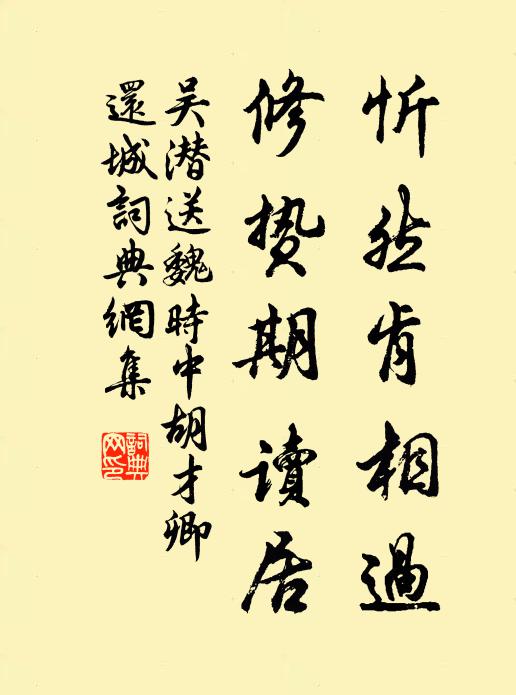 忻然肯相過
修贄期讀居
吴潜送魏時中胡才卿
還城詞典網集
詞典网印